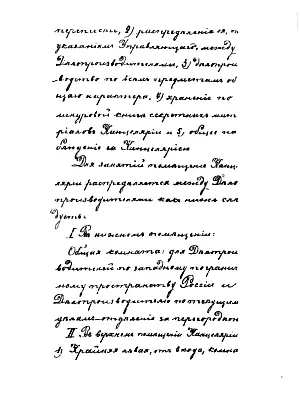 переписки, 2) распределение ея, по
указаніям Управляющаго, между
Делопроизводителями, 3) Делопроиз-
водство по всем предметам об-
щаго характера, 4) храненіе по
шнуровой книге секретных мате-
ріалов Канцеляріи и 5) общее на-
блюденіе за Канцеляріею
Для занятій помещеніе Канце-
ляріи распределяется между Дело-
производителями как ниже сле-
дуетъ:
I В нижнем помещеніи:
Общая комната: для Делопроиз-
водителей по западному погранич-
ному пространству Россіи и
Делопроизводителю по текущим
делам отделеніе за перегородкою
II Въ верхнем помещеніи Канцеляріи
1) Крайняя левая, отъ входа, комна-